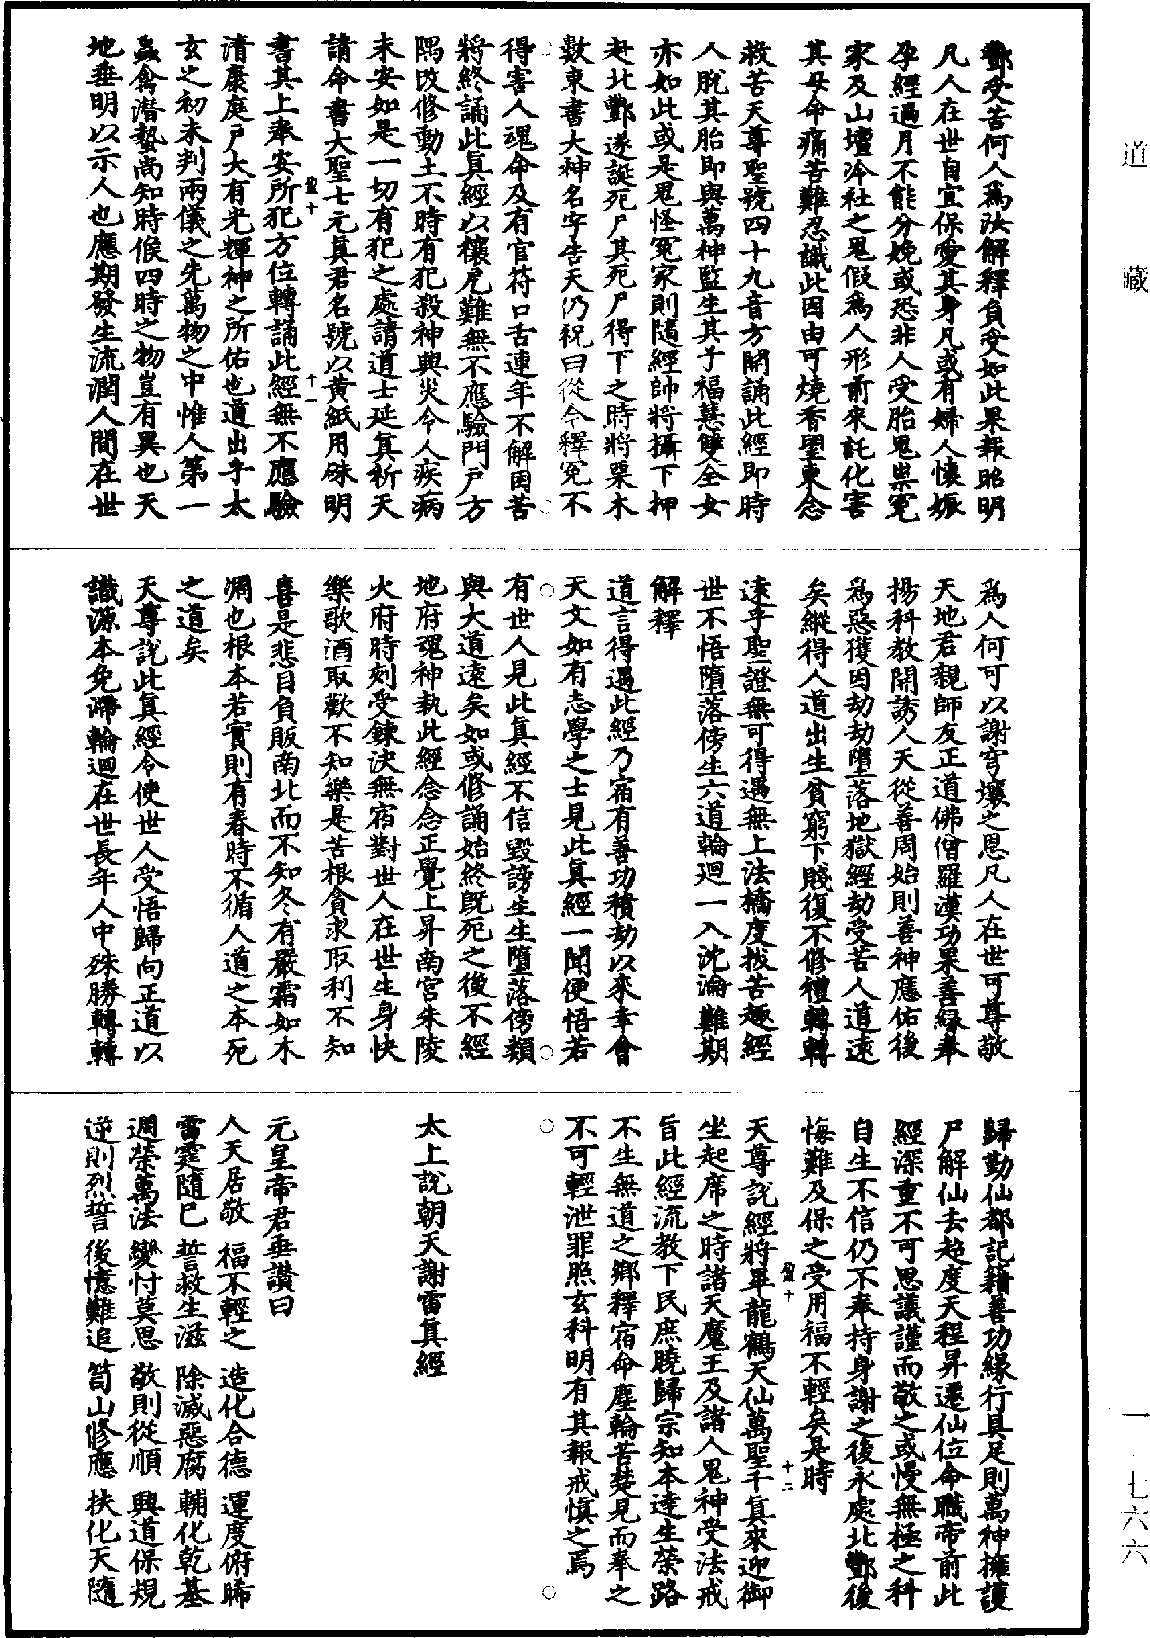 道藏
一 七六六
酆受苦何人爲汝解釋負受如此果報昭明
凡人在世自宜保愛其身凡或有婦人懷娠
孕經過月不能分娩或恐非人受胎鬼祟冤
家及山壇泠社之鬼假爲人形前來託化害
其母命痛苦難忍識此因由可燒香望東念
救苦天尊聖號四十九音方開誦此經即時
人脫其胎即與萬神監生其子福慧雙全女
亦如此或是鬼怪冤家則隨經帥將攝下押
赴北酆遂誕死尸其死尸得下之時將棗木
數束書大神名字告天仍祝曰從今釋冤不
得害人魂命及有官符口舌連年不解因苦
將終誦此眞經以禳危難無不應驗門戶方
隅改修動土不時有犯殺神興災令人疾病
未安如是一切有犯之處請道士延眞祈天
請命書大聖七元眞君名號以黃紙用硃明
書其上奉安所犯方位轉誦此經無不應驗
清康庭戶大有光輝神之所佑也道出乎太
玄之初未判兩儀之先萬物之中惟人第一
蟲禽潛蟄尚知時候四時之物豈有異也天
地垂明以示人也應期發生流潤人間在世
盈十 十一
爲人何可以謝穹壤之恩凡人在世可尊敬
天地君親師友正道佛僧羅漢功果善緣奉
揚科教開誘人天從善周始則善神應佑後
爲惡獲因劫劫墮落地獄經劫受苦人道遠
矣縱得人道出生貧窮下賤復不修禮轉轉
遠乎聖證無可得遇無上法橋度拔苦趣經
世不悟墮落傍生六道輪迴一入沈淪難期
解釋
道言得遇此經乃宿有善功積劫以來幸會
天文如有志學之士見此眞經一聞便悟若
有世人見此眞經不信毀謗生生墮落傍類
與大道遠矣如或修誦始終既死之後不經
地府魂神執此經念念正覺上昇南宮朱陵
火府時刻受鍊決無宿對世人在世生身快
樂歌酒取歡不知樂是苦根貪求取利不知
喜是悲目負販南北而不知冬有嚴霜如木
凋也根本若實則有春時不循人道之本死
之道矣
天尊說此眞經令使世人受悟歸向正道以
識源本免滯輪迴在世長年人中殊勝轉轉
歸勤仙都記籍善功緣行具足則萬神擁護
尸解仙去超度天程昇遷仙位命職帝前此
經深重不可思議謹而敬之或慢無極之科
自生不信仍不奉持身謝之後永處北酆後
悔難及保之受用福不輕矣是時
天尊說經將畢龍鶴天仙萬聖千眞來迎御
坐起席之時諸天魔王及諸人鬼神受法戒
旨此經流教下民庶曉歸宗知本達生榮路
不生無道之鄉釋宿命塵輪苦楚見而奉之
不可輕泄罪照玄科明有其報戒愼之焉
盈十 十二
太上說朝天謝雷眞經
元皇帝君垂讚曰
人天居敬 福不輕之 造化合德 運度俯晞
雷霆隨已 誓救生滋 除滅惡腐 輔化乾基
週榮萬法 變忖莫思 敬則從順 興道保規
逆則烈誓 後憶難追 筍山修應 扶化天隨